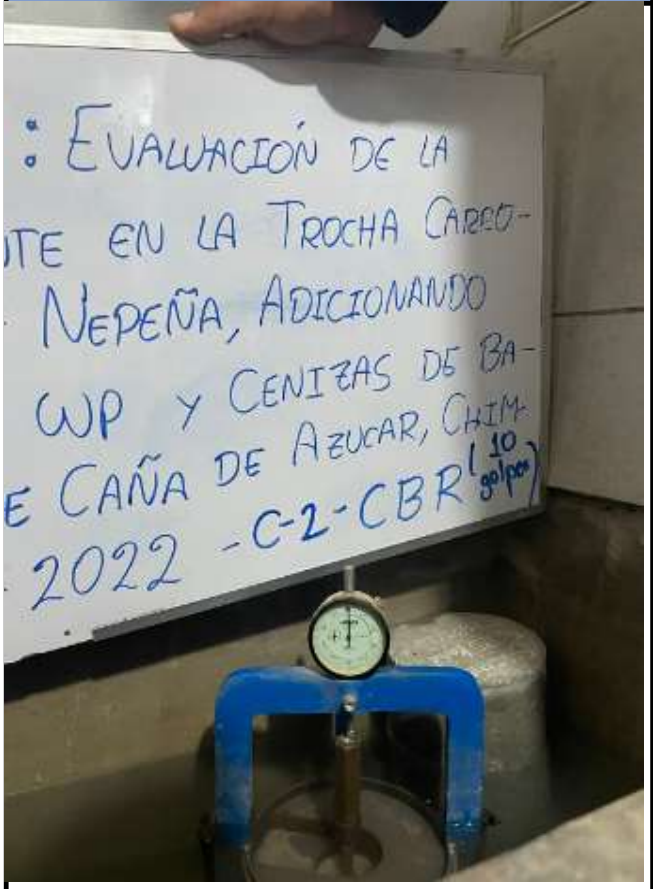 : EVALUACIÓN DE LA
TE EN LA TROCHA CARRO-
NEPEÑA, ADICIONANDO
WP Y CENIZAS DE BA-
E CAÑA DE AZUCAR, CHIM-
2022 - C-2 - CBR (10 golpes)